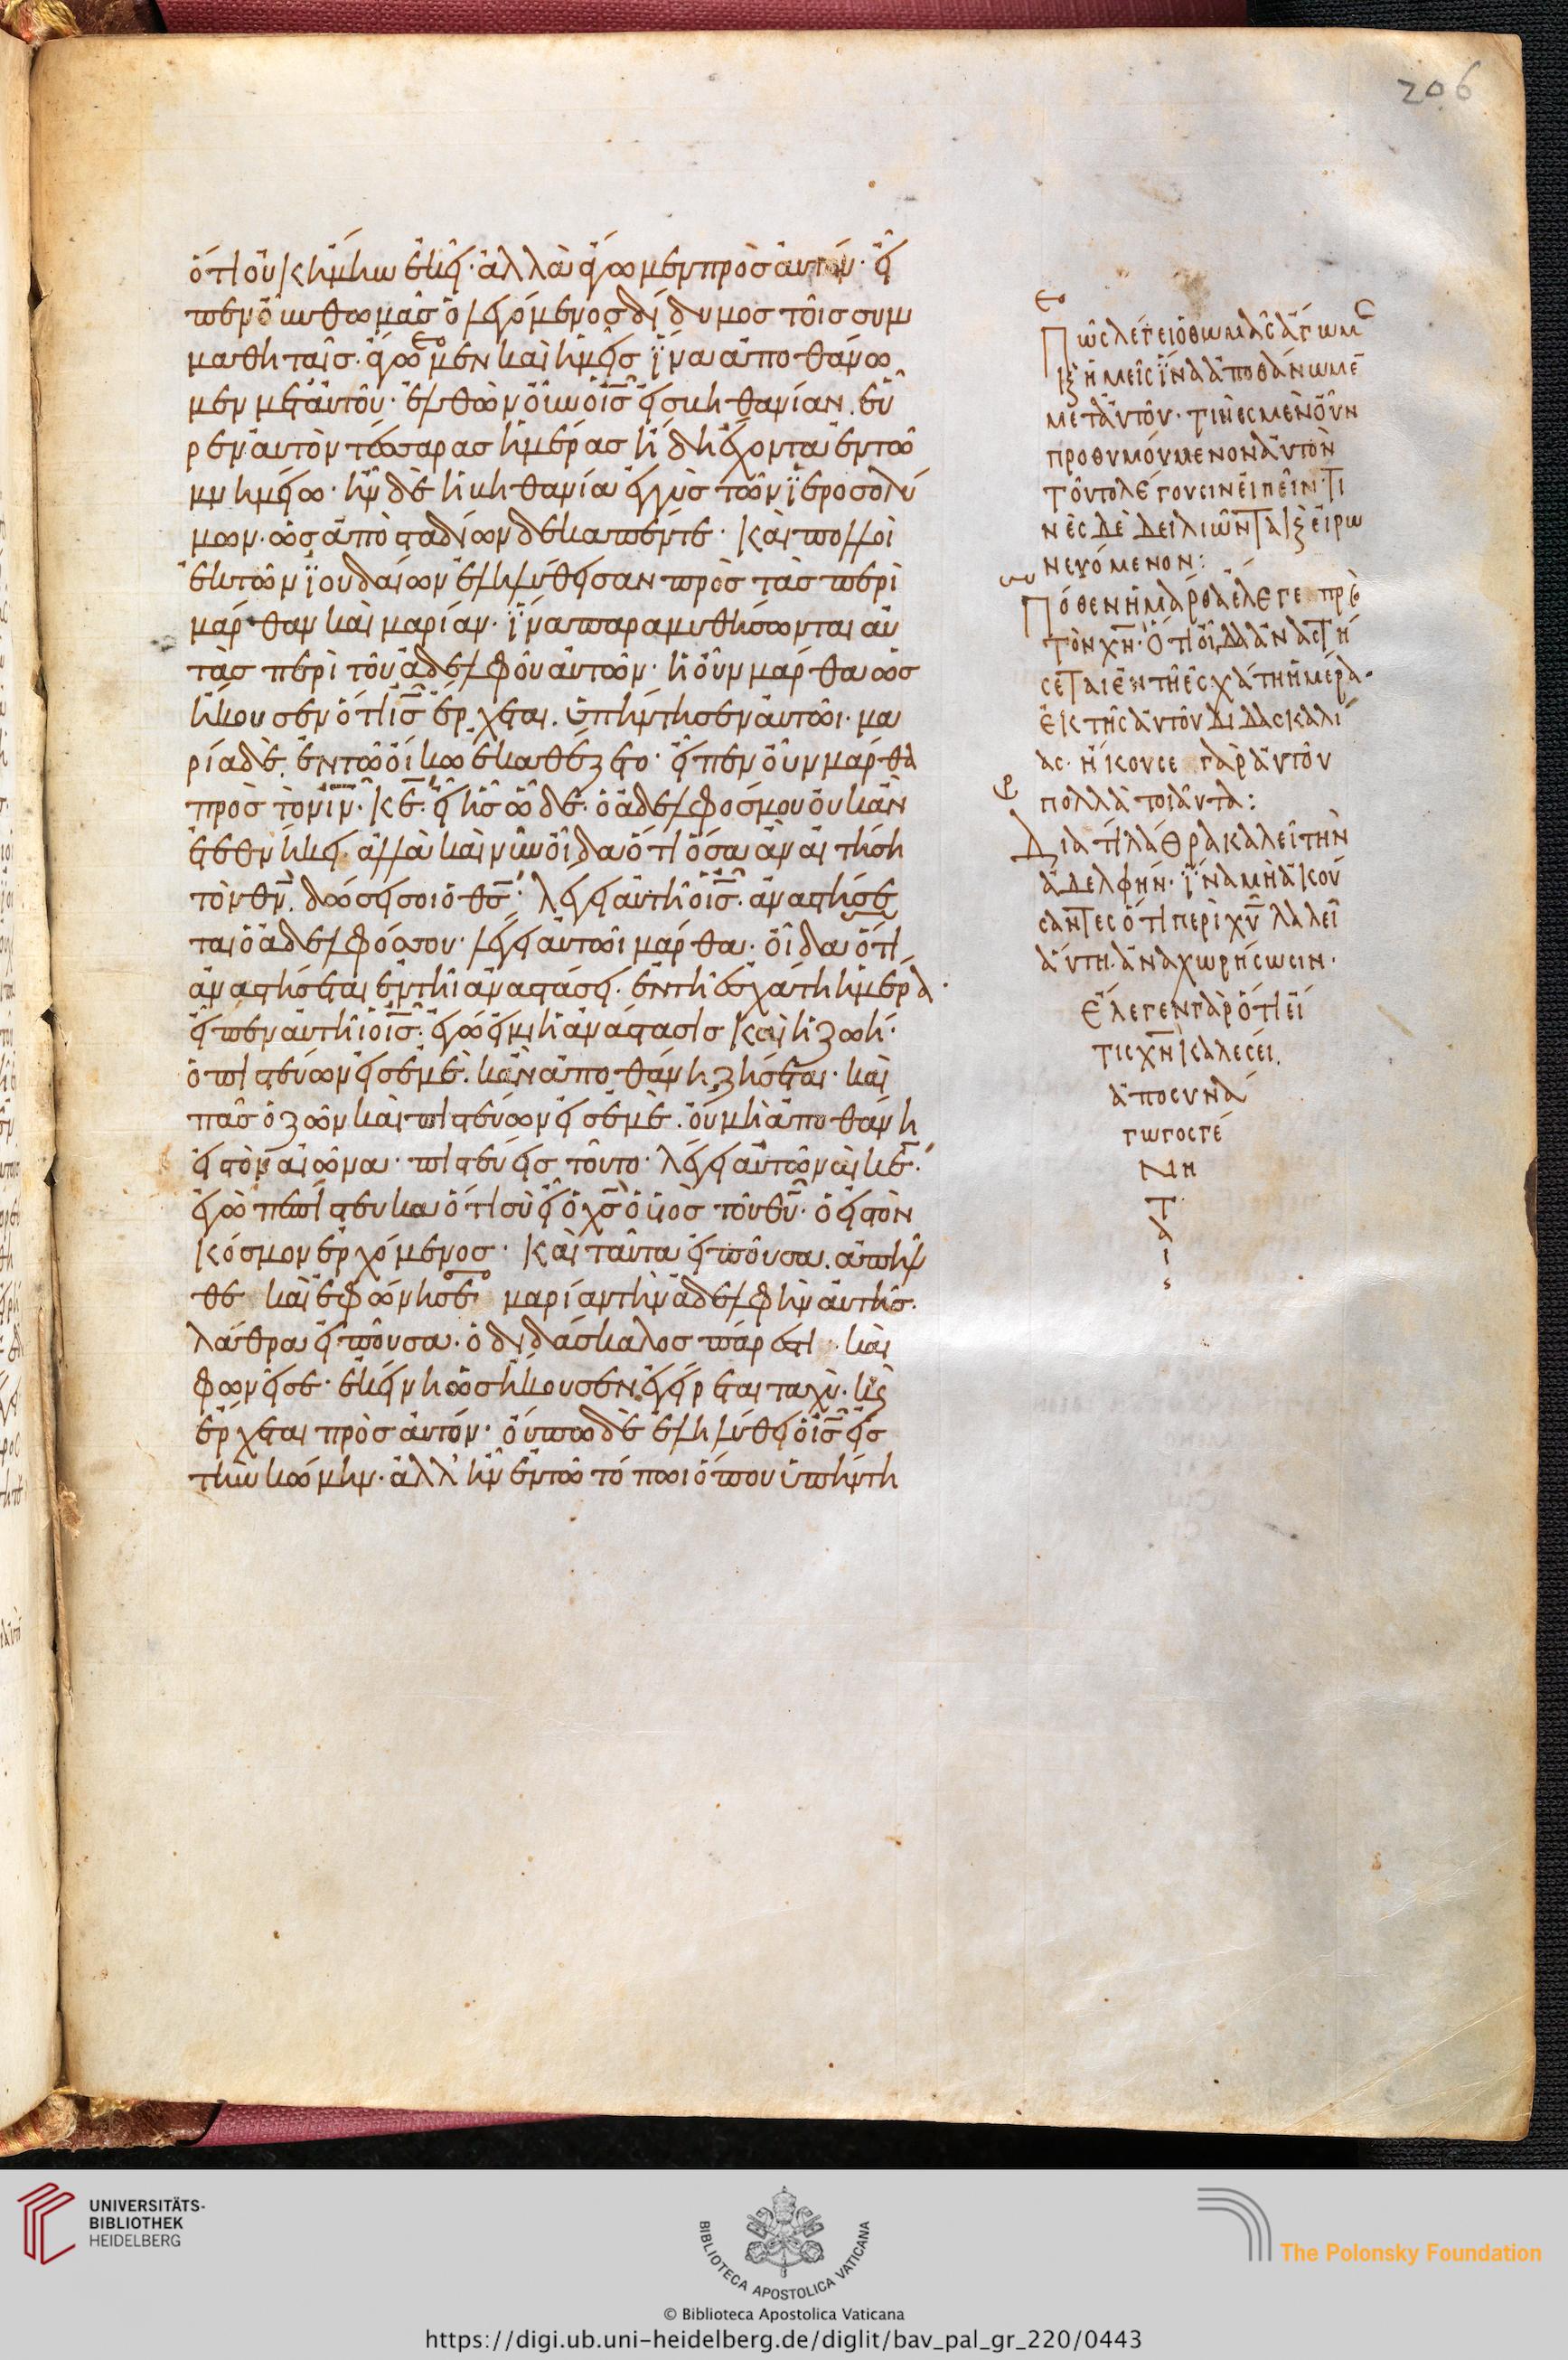 206
ὅτι οὐκ ἤμην ἐκεῖ· ἀλλὰ ἄγωμεν πρὸς αὐτόν· εἶ
πεν ὁ οὖν θωμᾶς ὁ λεγόμενος δίδυμος τοῖς συμ
μαθηταῖς· ἄγωμεν καὶ ἡμεῖς ἵνα ἀποθάνω
μεν μετ' αὐτοῦ· ἐλθὼν οὖν ὁ ι̅ς̅ εἰς κηθανίαν. εὗ
ρεν αὐτὸν τέσσαρας ἡμέρας ἤδη ἔχοντα ἐν τῶ
μνημείω· ἦν δὲ ἡ κηθανία ἐγγὺς τῶν ϊεροσολύ
μων. ὡς ἀπὸ σταδίων δεκαπέντε· καὶ πολλοὶ
ἐκ τῶν ϊουδαίων ἐληλύθεισαν πρὸς τὰς περὶ
μάρθαν καὶ μαρίαν· ἵνα παραμυθήσωνται αὐ
τὰς περὶ τοῦ ἀδελφοῦ αὐτῶν· ἡ οὖν μάρθα ὡς
ἤκουσεν ὅτι ι̅ς̅ ἔρχεται. ὑπήντησεν αὐτῶι· μα
ρία δὲ ἐν τῶ οἴκω ἐκαθέζετο· εἶπεν οὖν μάρθα
πρὸς τὸν ι̅ν̅· κ̅ε̅· εἰ ἦς ὧδε· ὁ ἀδελφός μου οὐκ ἂν
ἐτεθνήκει· ἀλλὰ καὶ νῦν οἶδα ὅτι ὅσα ἂν αἰτήση
τὸν θ̅ν̅. δώσει σοι ὁ θ̅ς̅· λέγει αὐτῆ ὁ ι̅ς̅. ἀναστήσε
ται ὁ ἀδελφός σου· λέγει αὐτῶι μάρθα· οἶδα ὅτι
ἀναστήσεται ἐν τῆι ἀναστάσει· ἐν τῆ ἐσχάτη ἡμέρα·
εἶπεν αὐτῆι ὁ ι̅ς̅· ἐγώ εἰμι ἡ ἀνάστασις καὶ ἡ ζωή·
ὁ πιστεύων εἰς ἐμὲ. κἂν ἀποθάνη ζήσεται· καὶ
πᾶς ὁ ζῶν καὶ πιστεύων εἰς ἐμὲ. οὐ μὴ ἀποθάνη
εἰς τὸν αἰῶνα· πιστεύεις τοῦτο· λέγει αὐτῶ ναὶ κ̅ε̅·
ἐγὼ πεπίστευκα ὅτι σὺ εἶ ὁ χ̅ς̅ ὁ υἱὸς τοῦ θ̅υ̅· ὁ εἰς τὸν
κόσμον ἐρχόμενος· καὶ ταῦτα εἰποῦσα. ἀπῆλ
θε καὶ ἐφώνησε μαρίαν τὴν ἀδελφὴν αὐτῆς.
λάθρα εἰποῦσα· ὁ διδάσκαλος πάρεστι· καὶ
φωνεῖ σε· ἐκείνη ὡς ἤκουσεν ἐγείρεται ταχὺ· καὶ
ἔρχεται πρὸς αὐτόν· οὔπω δὲ ἐληλύθει ὁ ι̅ς̅ εἰς
τὴν κώμην· ἀλλ' ἦν ἐν τῶ τόπωι ὅπου ὑπήντη
Πῶς λέγει ὁ θωμᾶς ἄγωμεν
καὶ ἡμεῖς ἵνα ἀποθάνωμε̅
μετ' αὐτοῦ· τινὲς μὲν οὖν
προθυμούμενον αὐτὸν
τοῦτο λέγουσιν εἰπεῖν· τι
νὲς δὲ δειλιῶντα καὶ εἰρω
νευόμενον:
Πόθεν ἡ μάρθα ἔλεγε πρὸς
τὸν χ̅ν̅· ὅτι οἶδα ἀναστή
σεται ἐν τῆ ἐσχάτη ἡμέρα·
ἐκ τῆς αὐτοῦ διδασκαλί
ας· ἤκουσε γὰρ αὐτοῦ
πολλὰ τοιαῦτα:
Διατί λάθρα καλεῖ τὴν
ἀδελφήν· ἵνα μὴ ἀκού
σαντες ὅτι περὶ χ̅υ̅ λαλεῖ
αὐτη. ἀναχωρήσωσιν·
Ἔλεγεν γὰρ ὅτι εἴ
τις χ̅ν̅ καλέσει.
ἀποσυνά
γωγος γέ
νη
τ
α
ι
:
UNIVERSITÄTS-
BIBLIOTHEK
HEIDELBERG
BIBLIOTECA APOSTOLICA VATICANA
The Polonsky Foundation
© Biblioteca Apostolica Vaticana
https://digi.ub.uni-heidelberg.de/diglit/bav_pal_gr_220/0443